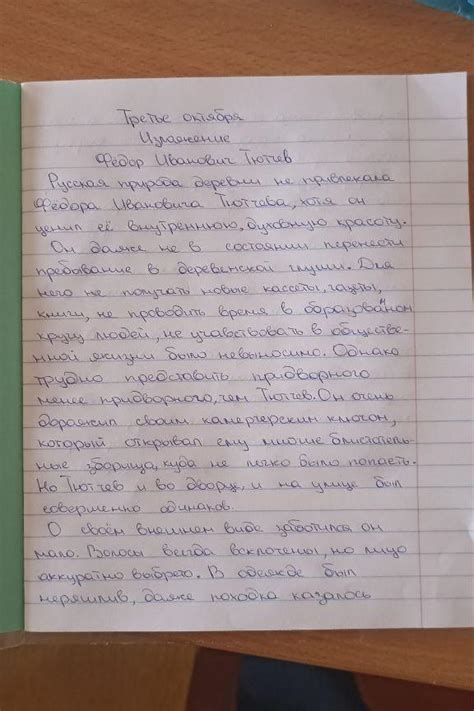 Третье октября
Изложение
Фёдор Иванович Тютчев
Русская природа деревни не привлекала
Фёдора Ивановича Тютчева, хотя он
ценил её внутреннюю, духовную красоту.
Он даже не в состоянии перенести
пребывание в деревенской глуши. Для
него не получать новые кассеты, газеты,
книги, не проводить время в образованном
кругу людей, не учавствовать в обществе-
нной жизни было невыносимо. Однако
трудно представить придворного
менее придворного, чем Тютчев. Он очень
дорожил своим камергерским ключом,
который открывал ему многие блистатель-
ные зборища, куда не легко было попасть.
Но Тютчев и во дворце, и на улице был
совершенно одинаков.
О своём внешнем виде заботился он
мало. Волосы всегда всклочены, но лицо
аккуратно выбрето. В одежде был
неряшлив, даже походка казалось